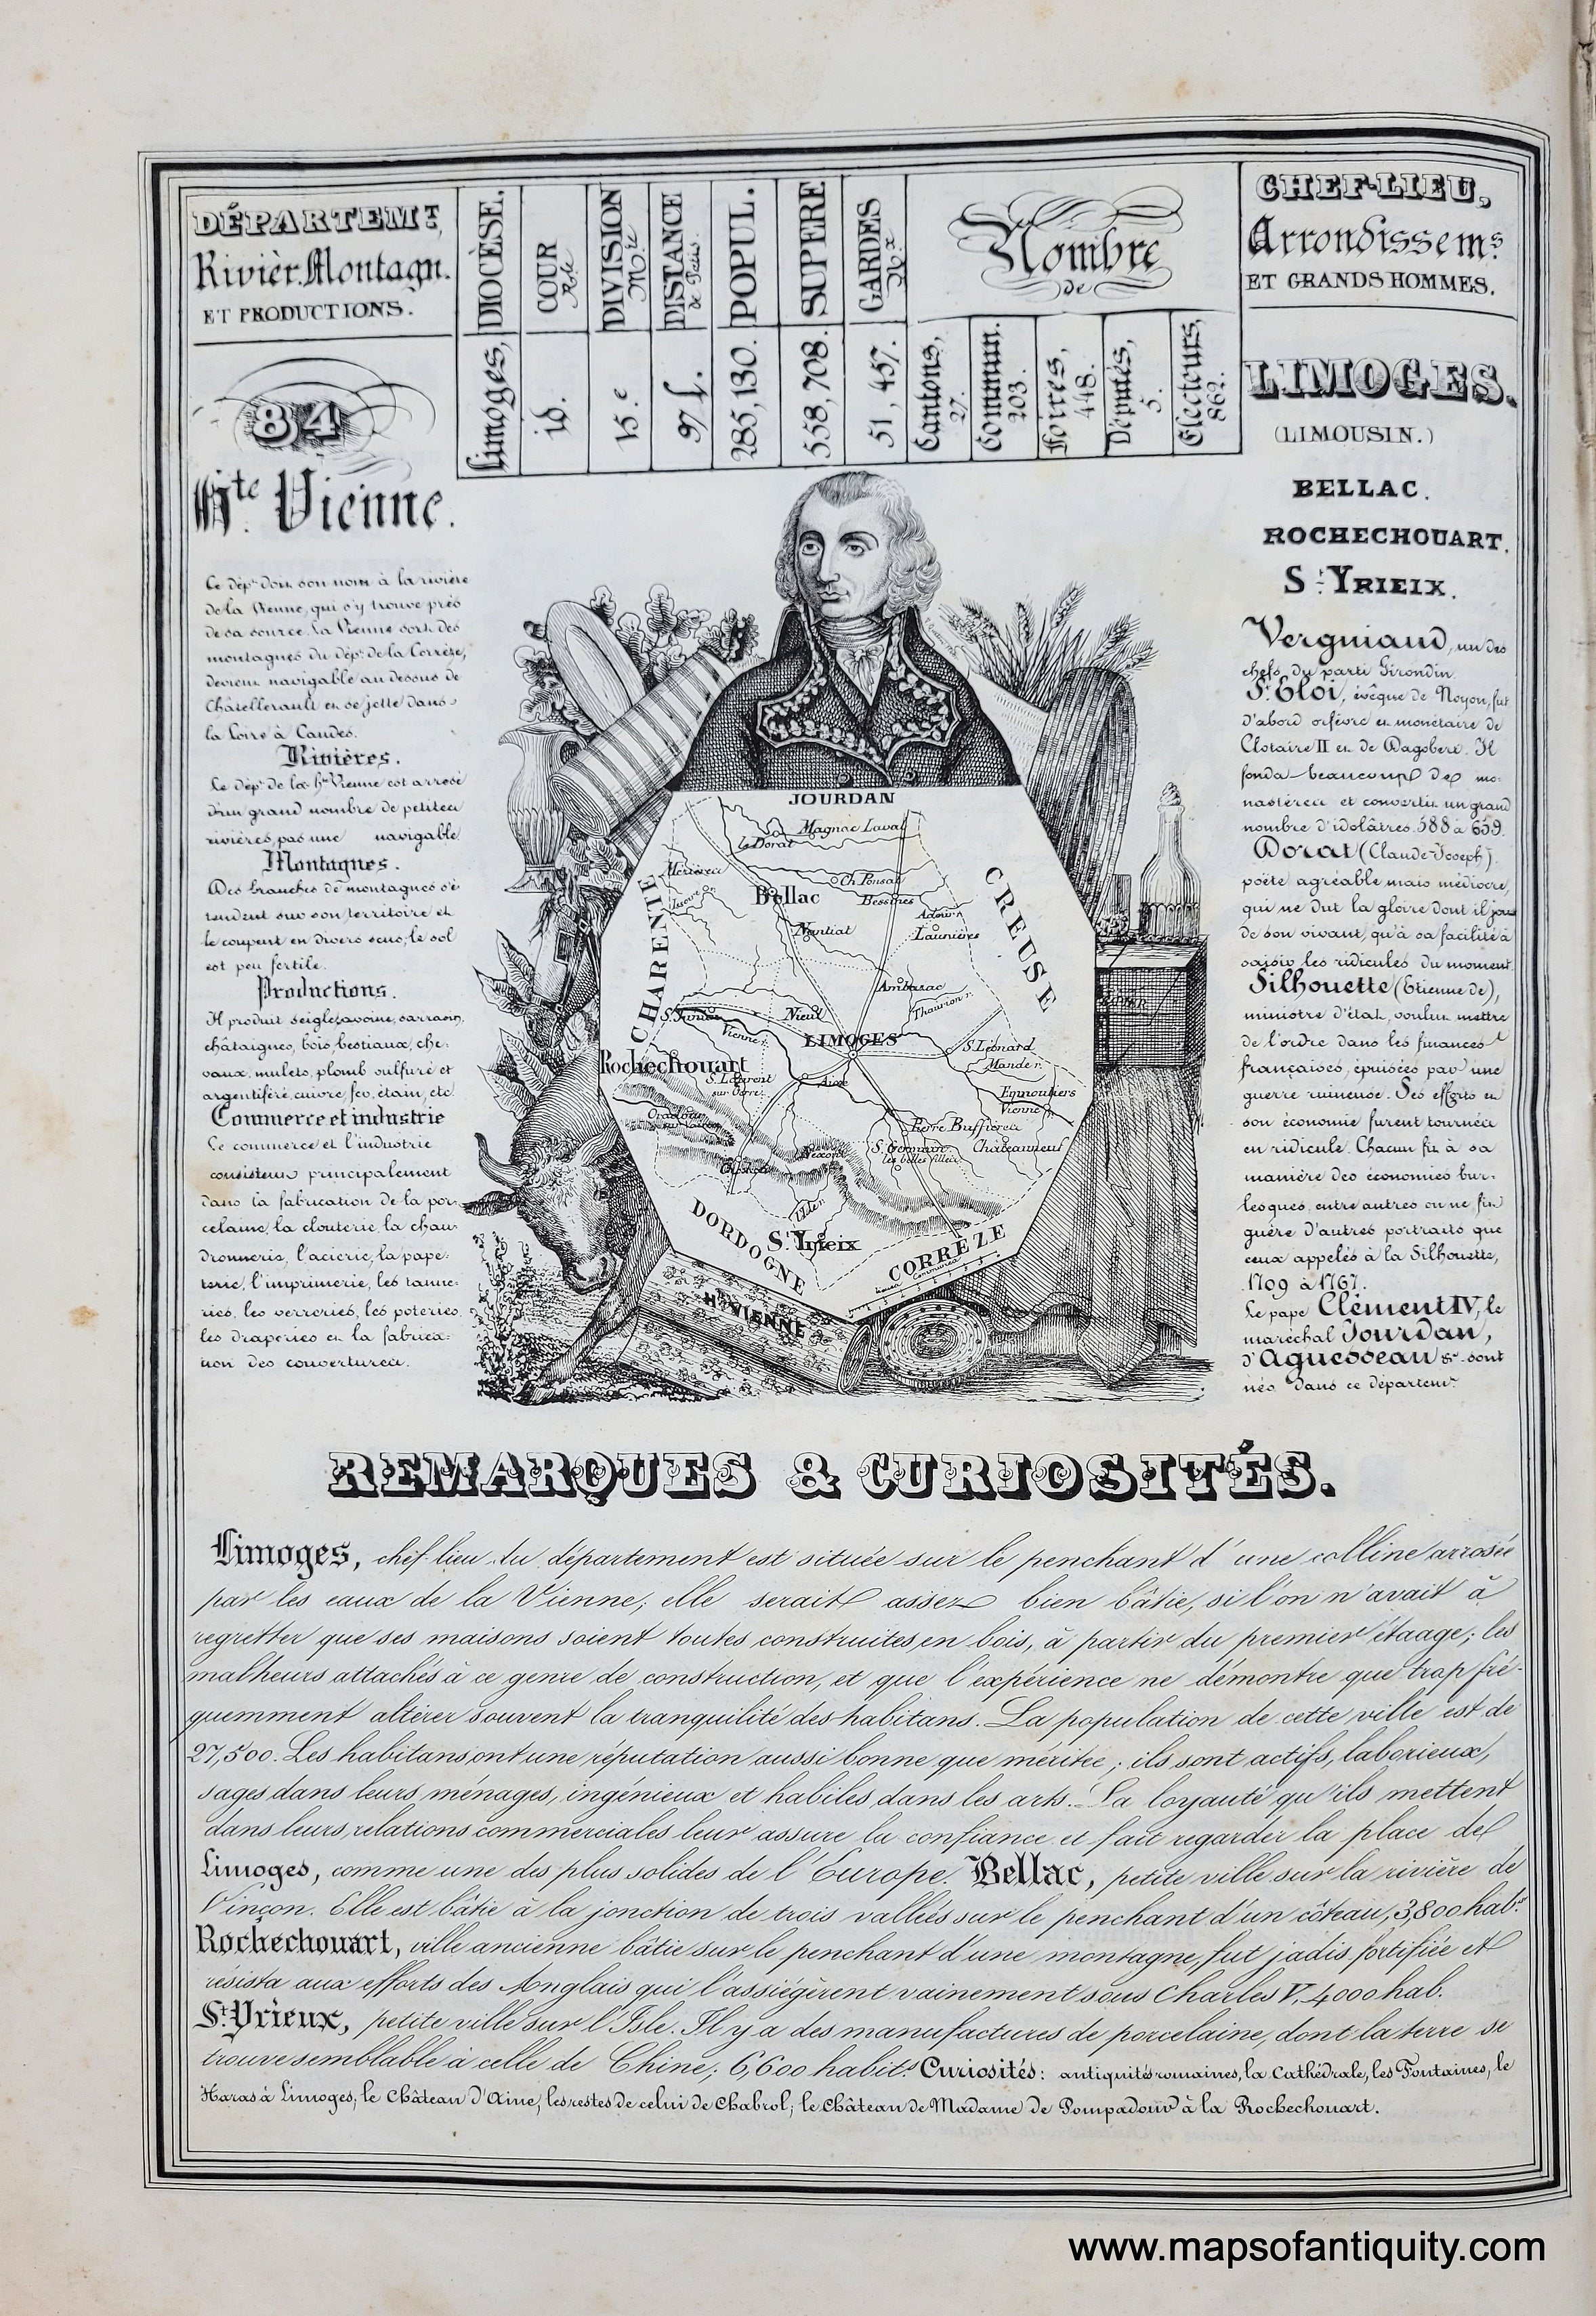 DÉPARTEMT
Rivièr. Montagn.
ET PRODUCTIONS.
DIOCÈSE.
COUR Rle
DIVISION Mre
DISTANCE de Paris.
POPUL.
SUPERF
GARDES Nx
Nombre
de
CHEF-LIEU,
Arrondissems.
ET GRANDS HOMMES.
Limoges,
id.
15.e
97 l.
285,130.
558,708.
51,457.
Cantons, 27.
Commun. 203.
Foires, 448.
Députés, 5.
Electeurs, 862.
84
Hte. Vienne.
Ce dépt. doit son nom à la rivière
de la Vienne, qui s'y trouve près
de sa source. La Vienne sort des
montagnes du dépt. de la Corrèze,
devient navigable au dessus de
Châtellerault et se jette dans
la Loire à Candes.
Rivières.
Le dépt. de la hte Vienne est arrosé
d'un grand nombre de petites
rivières, pas une navigable.
Montagnes.
Des branches de montagnes s'é-
tendent sur son territoire et
le coupent en divers sens, le sol
est peu fertile.
Productions.
Il produit seigle, avoine, sarrasin,
châtaignes, bois, bestiaux, che-
vaux, mulets, plomb sulfuré et
argentifère, cuivre, fer, étain, etc.
Commerce et industrie
Le commerce et l'industrie
consistent principalement
dans la fabrication de la por-
celaine, la clouterie, la chau-
dronnerie, l'acierie, la pape-
terie, l'imprimerie, les tanne-
ries, les verreries, les poteries,
les draperies et la fabrica-
tion des couvertures.
LIMOGES.
(LIMOUSIN.)
BELLAC.
ROCHECHOUART.
St. YRIEIX.
Vergniaud, un des
chefs du parti Girondin.
St. Eloi, évêque de Noyon, fut
d'abord orfèvre et monétaire de
Clotaire II et de Dagobert. Il
fonda beaucoup de mo-
nastères et convertit un grand
nombre d'idolâtres. 588 à 659.
Dorat (Claude-Joseph).
poète agréable mais médiocre,
qui ne dut la gloire dont il jouit
de son vivant, qu'à sa facilité à
saisir les ridicules du moment.
Silhouette (Etienne de),
ministre d'état, voulut mettre
de l'ordre dans les finances
françaises, épuisées par une
guerre ruineuse. Ses efforts et
son économie furent tournées
en ridicule. Chacun fit à sa
manière des économies bur-
lesques, entre autres on ne fit
guère d'autres portraits que
ceux appelés à la Silhouette,
1709 à 1767.
Le pape Clément IV, le
maréchal Jourdan,
d'Aguesseau &c. sont
nés dans ce départemt.
JOURDAN
Magnac Laval
le Dorat
Mézières
Bellac
Ch. Ponsac
Bessines
Nantiat
Launières
CHARENTE
CREUSE
Ambazac
Thaurion r.
St. Junien
Nieul
Vienne r.
LIMOGES
St. Léonard
Mande r.
Rochechouart
St. Laurent
sur Gorre
Aixe
Eymoutiers
Vienne r.
Oradour
sur Vaires
Pierre Buffière
Chalus
Nexon
St. Germain
les belles filles
Châteauneuf
L'Isle r.
St. Yrieix
DORDOGNE
CORRÈZE
Hte VIENNE
REMARQUES & CURIOSITÉS.
Limoges, chef-lieu du département est située sur le penchant d'une colline arrosée
par les eaux de la Vienne; elle serait assez bien bâtie, si l'on n'avait à
regretter que ses maisons soient toutes construites en bois, à partir du premier étaage; les
malheurs attachés à ce genre de construction, et que l'expérience ne démontre que trop fré-
quemment altérer souvent la tranquilité des habitans. La population de cette ville est de
27,500. Les habitans ont une réputation aussi bonne que méritée; ils sont actifs, laborieux,
sages dans leurs ménages, ingénieux et habiles dans les arts. La loyauté qu'ils mettent
dans leurs relations commerciales leur assure la confiance et fait regarder la place de
Limoges, comme une des plus solides de l'Europe. Bellac, petite ville sur la rivière de
Vinçon. Elle est bâtie à la jonction de trois vallées sur le penchant d'un côteau, 3,800 habts.
Rochechouart, ville ancienne bâtie sur le penchant d'une montagne, fut jadis fortifiée et
résista aux efforts des Anglais qui l'assiégèrent vainement sous Charles V. 4000 hab.
St. Yrieux, petite ville sur l'Isle. Il y a des manufactures de porcelaine, dont la terre se
trouve semblable à celle de Chine; 6,600 habits. Curiosités: antiquités romaines, la Cathédrale, les Fontaines, le
Haras à Limoges; le Château d'Aine, les restes de celui de Chabrol; le Château de Madame de Pompadour à la Rochechouart.
www.mapsofantiquity.com